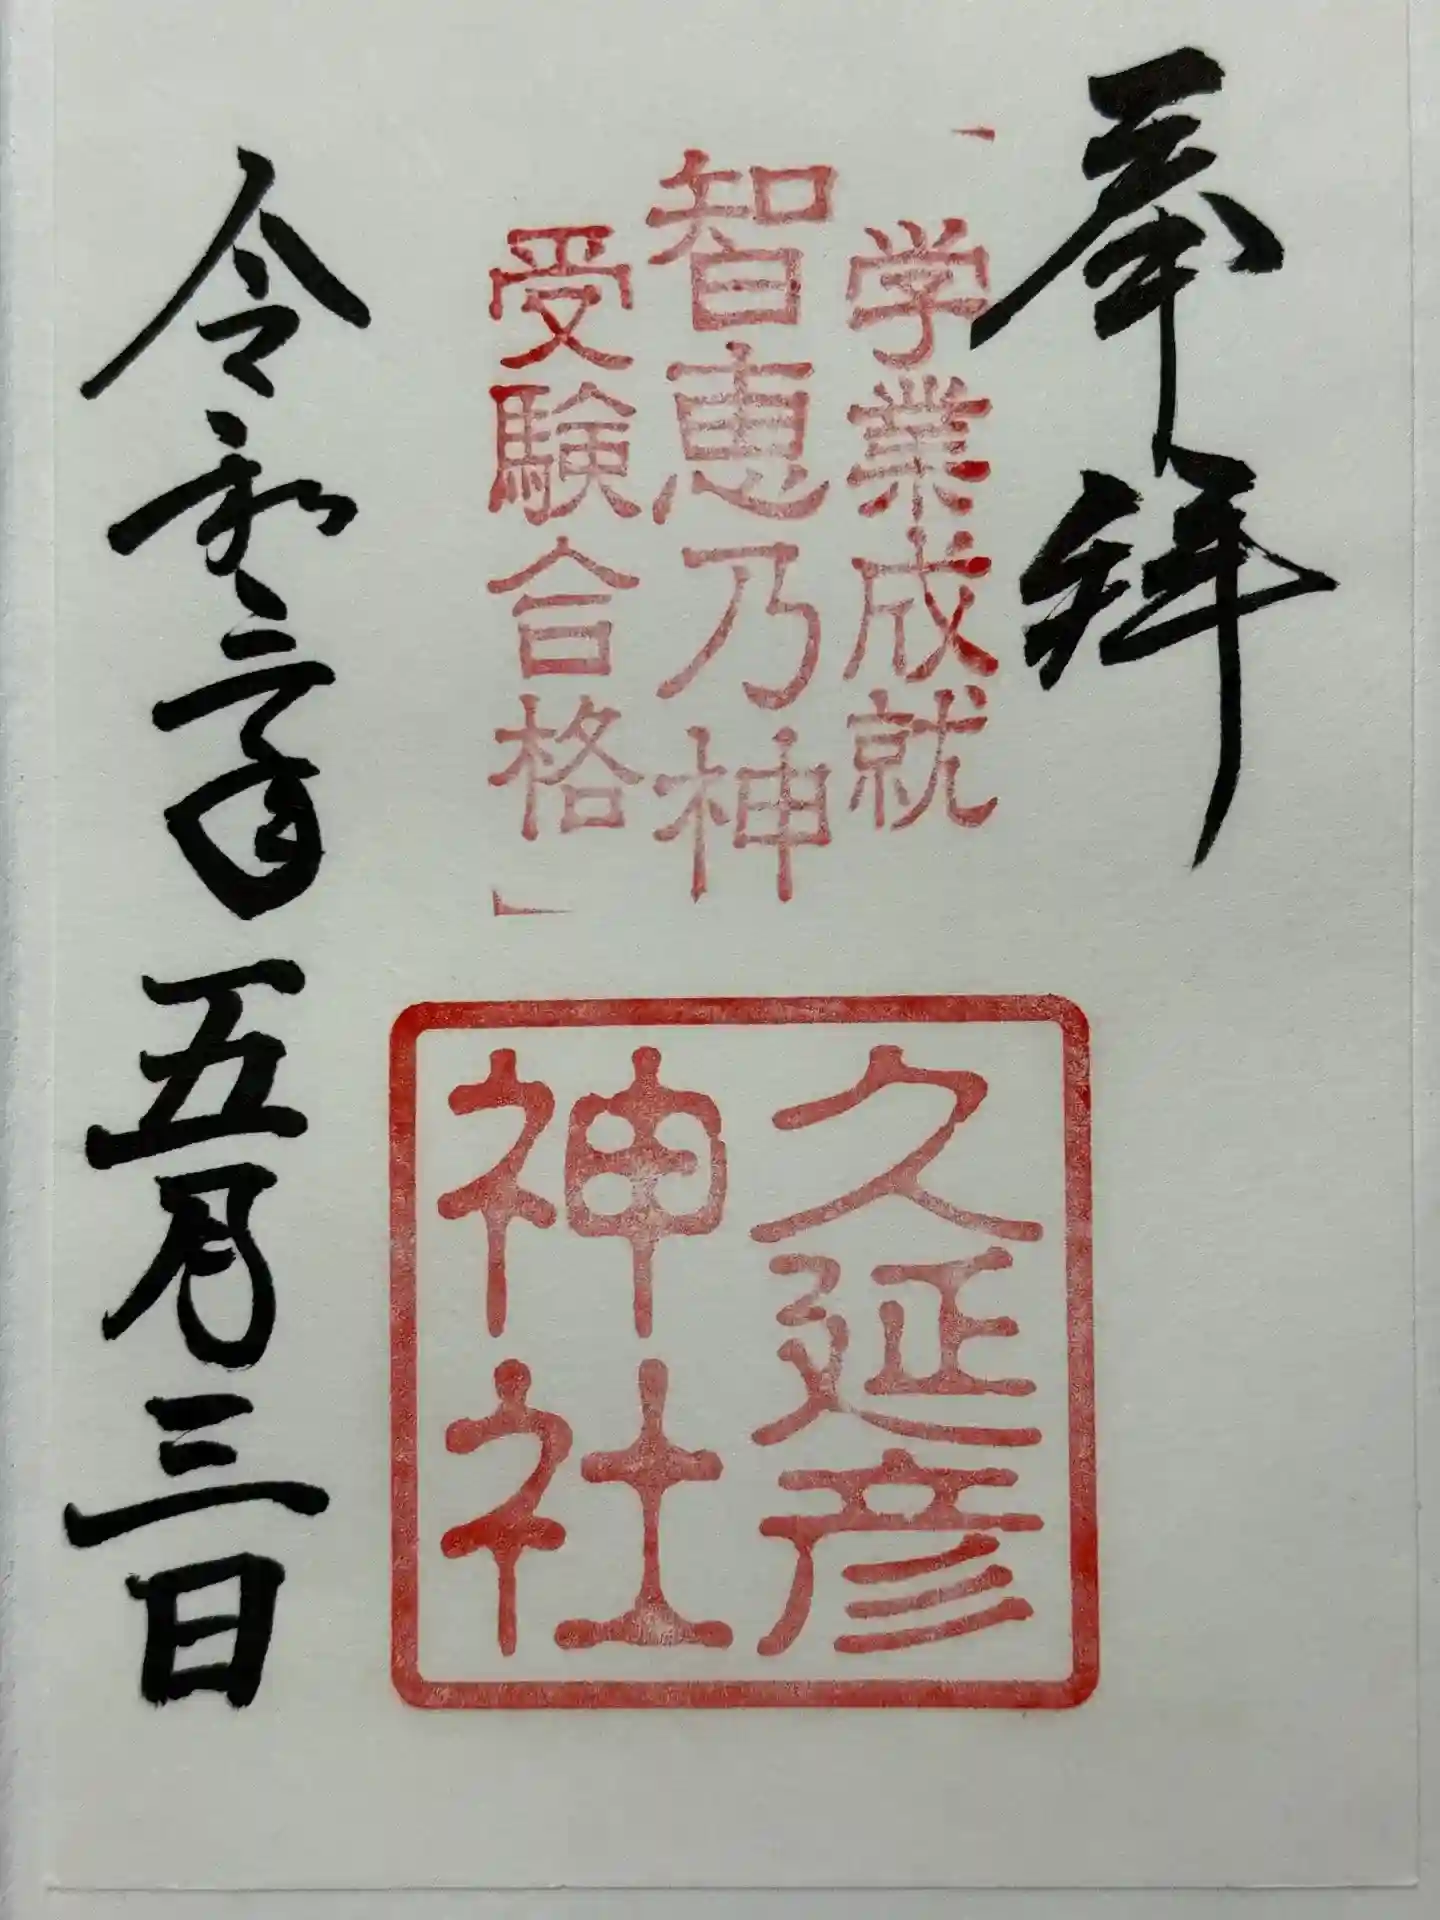 奉拝
「学業成就
智恵乃神
受験合格」
久延彦
神社
令和年五月三日